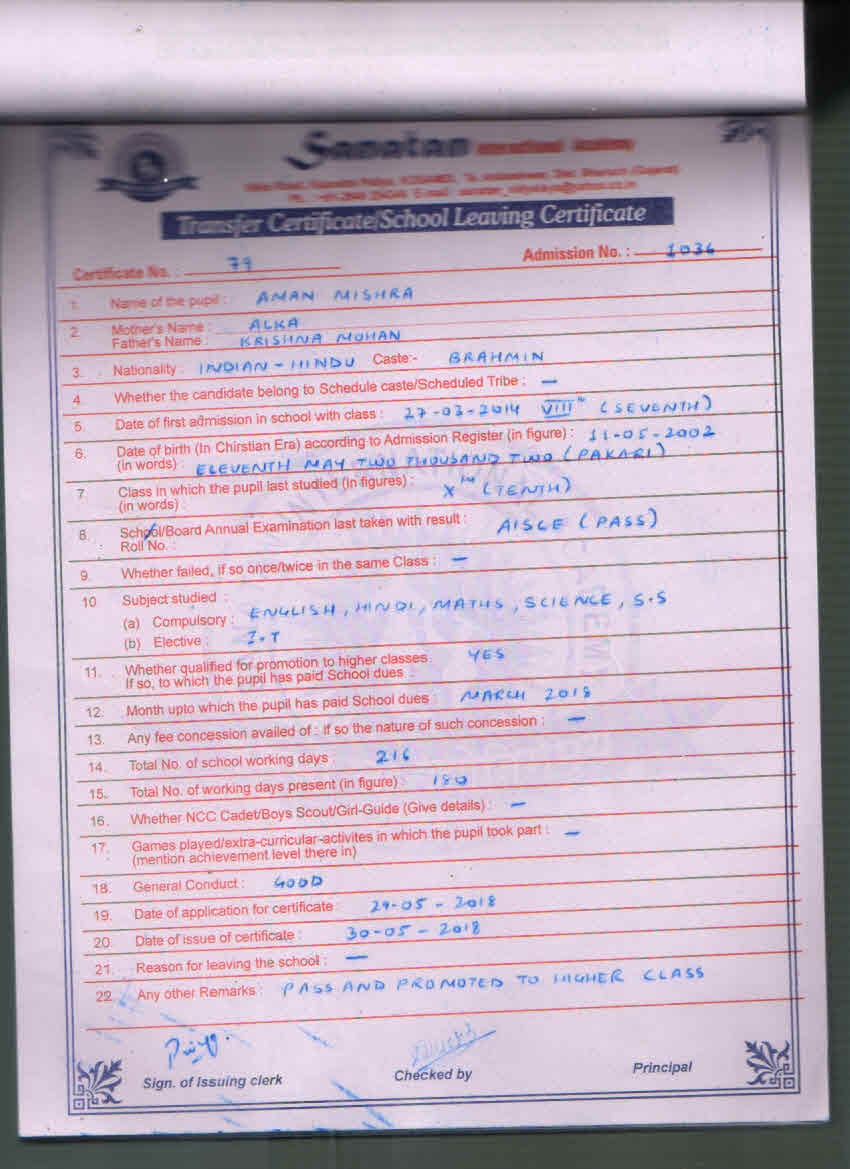 Sanatan International Academy
Transfer Certificate/School Leaving Certificate
Certificate No. : 79 Admission No. : 1036
1. Name of the pupil : AMAN MISHRA
2. Mother's Name : ALKA
Father's Name : KRISHNA MOHAN
3. Nationality : INDIAN - HINDU Caste:- BRAHMIN
4. Whether the candidate belong to Schedule caste/Scheduled Tribe : —
5. Date of first admission in school with class : 27-03-2014 VIIIth (SEVENTH)
6. Date of birth (In Chirstian Era) according to Admission Register (in figure) : 11-05-2002
(in words) : ELEVENTH MAY TWO THOUSAND TWO (PAKARI)
7. Class in which the pupil last studied (in figures) : Xth (TENTH)
(in words) :
8. School/Board Annual Examination last taken with result : AISCE (PASS)
Roll No. :
9. Whether failed, if so once/twice in the same Class : —
10 Subject studied :
(a) Compulsory : ENGLISH, HINDI, MATHS, SCIENCE, S.S
(b) Elective : I.T
11. Whether qualified for promotion to higher classes YES
If so, to which the pupil has paid School dues
12. Month upto which the pupil has paid School dues : MARCH 2018
13. Any fee concession availed of : if so the nature of such concession : —
14. Total No. of school working days : 216
15. Total No. of working days present (in figure) : 180
16. Whether NCC Cadet/Boys Scout/Girl-Guide (Give details) : —
17. Games played/extra-curricular-activites in which the pupil took part : —
(mention achievement level there in)
18. General Conduct : GOOD
19. Date of application for certificate : 29-05-2018
20. Date of issue of certificate : 30-05-2018
21. Reason for leaving the school : —
22. Any other Remarks : PASS AND PROMOTED TO HIGHER CLASS
Sign. of Issuing clerk Checked by Principal